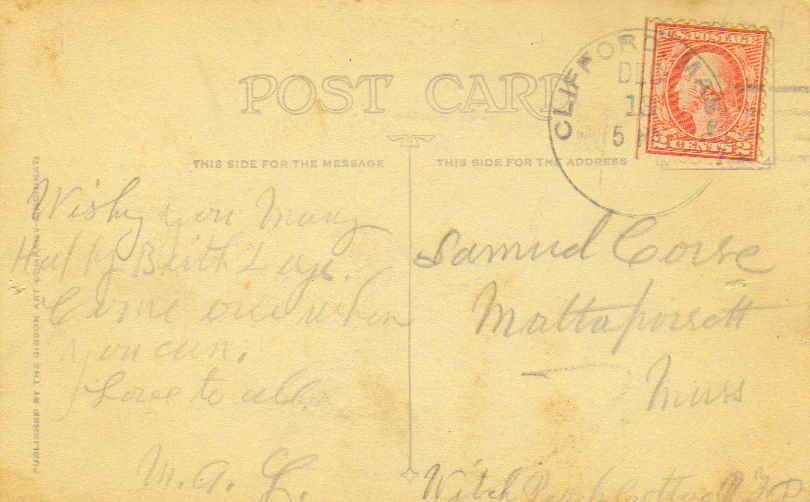 POST CARD
THIS SIDE FOR THE MESSAGE
THIS SIDE FOR THE ADDRESS
CLIFFORD MASS
DEC
5
U.S. POSTAGE
2 CENTS 2
Wishg you Many
Happy Birth Days.
Come over when
you can.
Love to all.
M. A. L.
Samuel Corse
Mattapoisett
Mass
PUBLISHED BY THE GIBSON ART COMPANY CINCINNATI